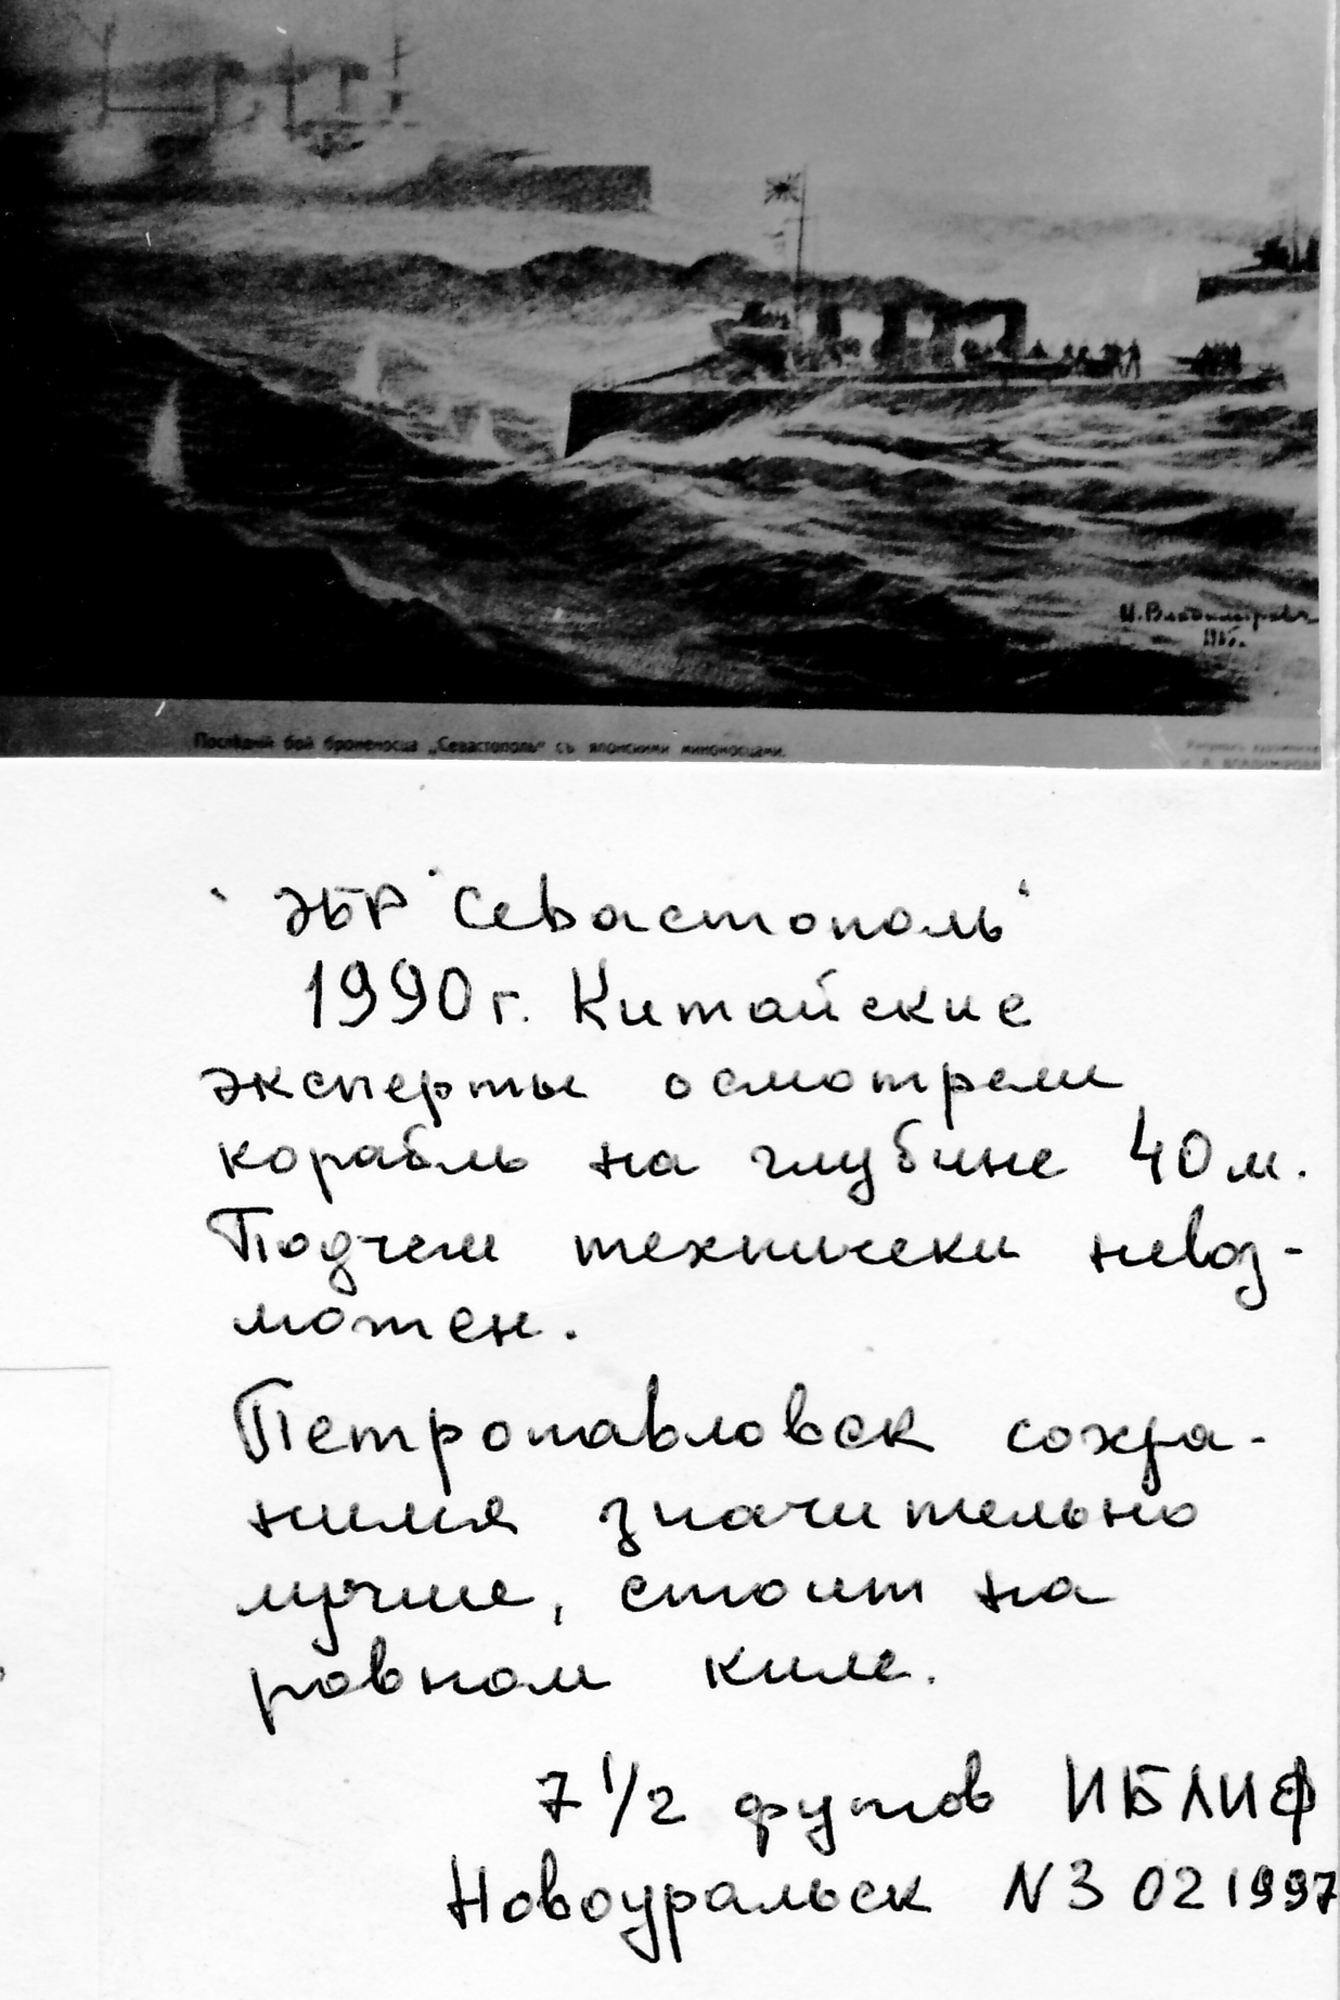 И. Владимировъ
Последній бой броненосца „Севастополь“ съ японскими миноносцами.
Рисунокъ художника
И. А. ВЛАДИМІРОВА
ЭБР "Севастополь"
1990 г. Китайские
эксперты осмотрели
корабль на глубине 40 м.
Подъем технически невоз-
можен.
Петропавловск сохра-
нился значительно
лучше, стоит на
ровном киле.
7 1/2 футов ИБЛИФ
Новоуральск N3 02 1997